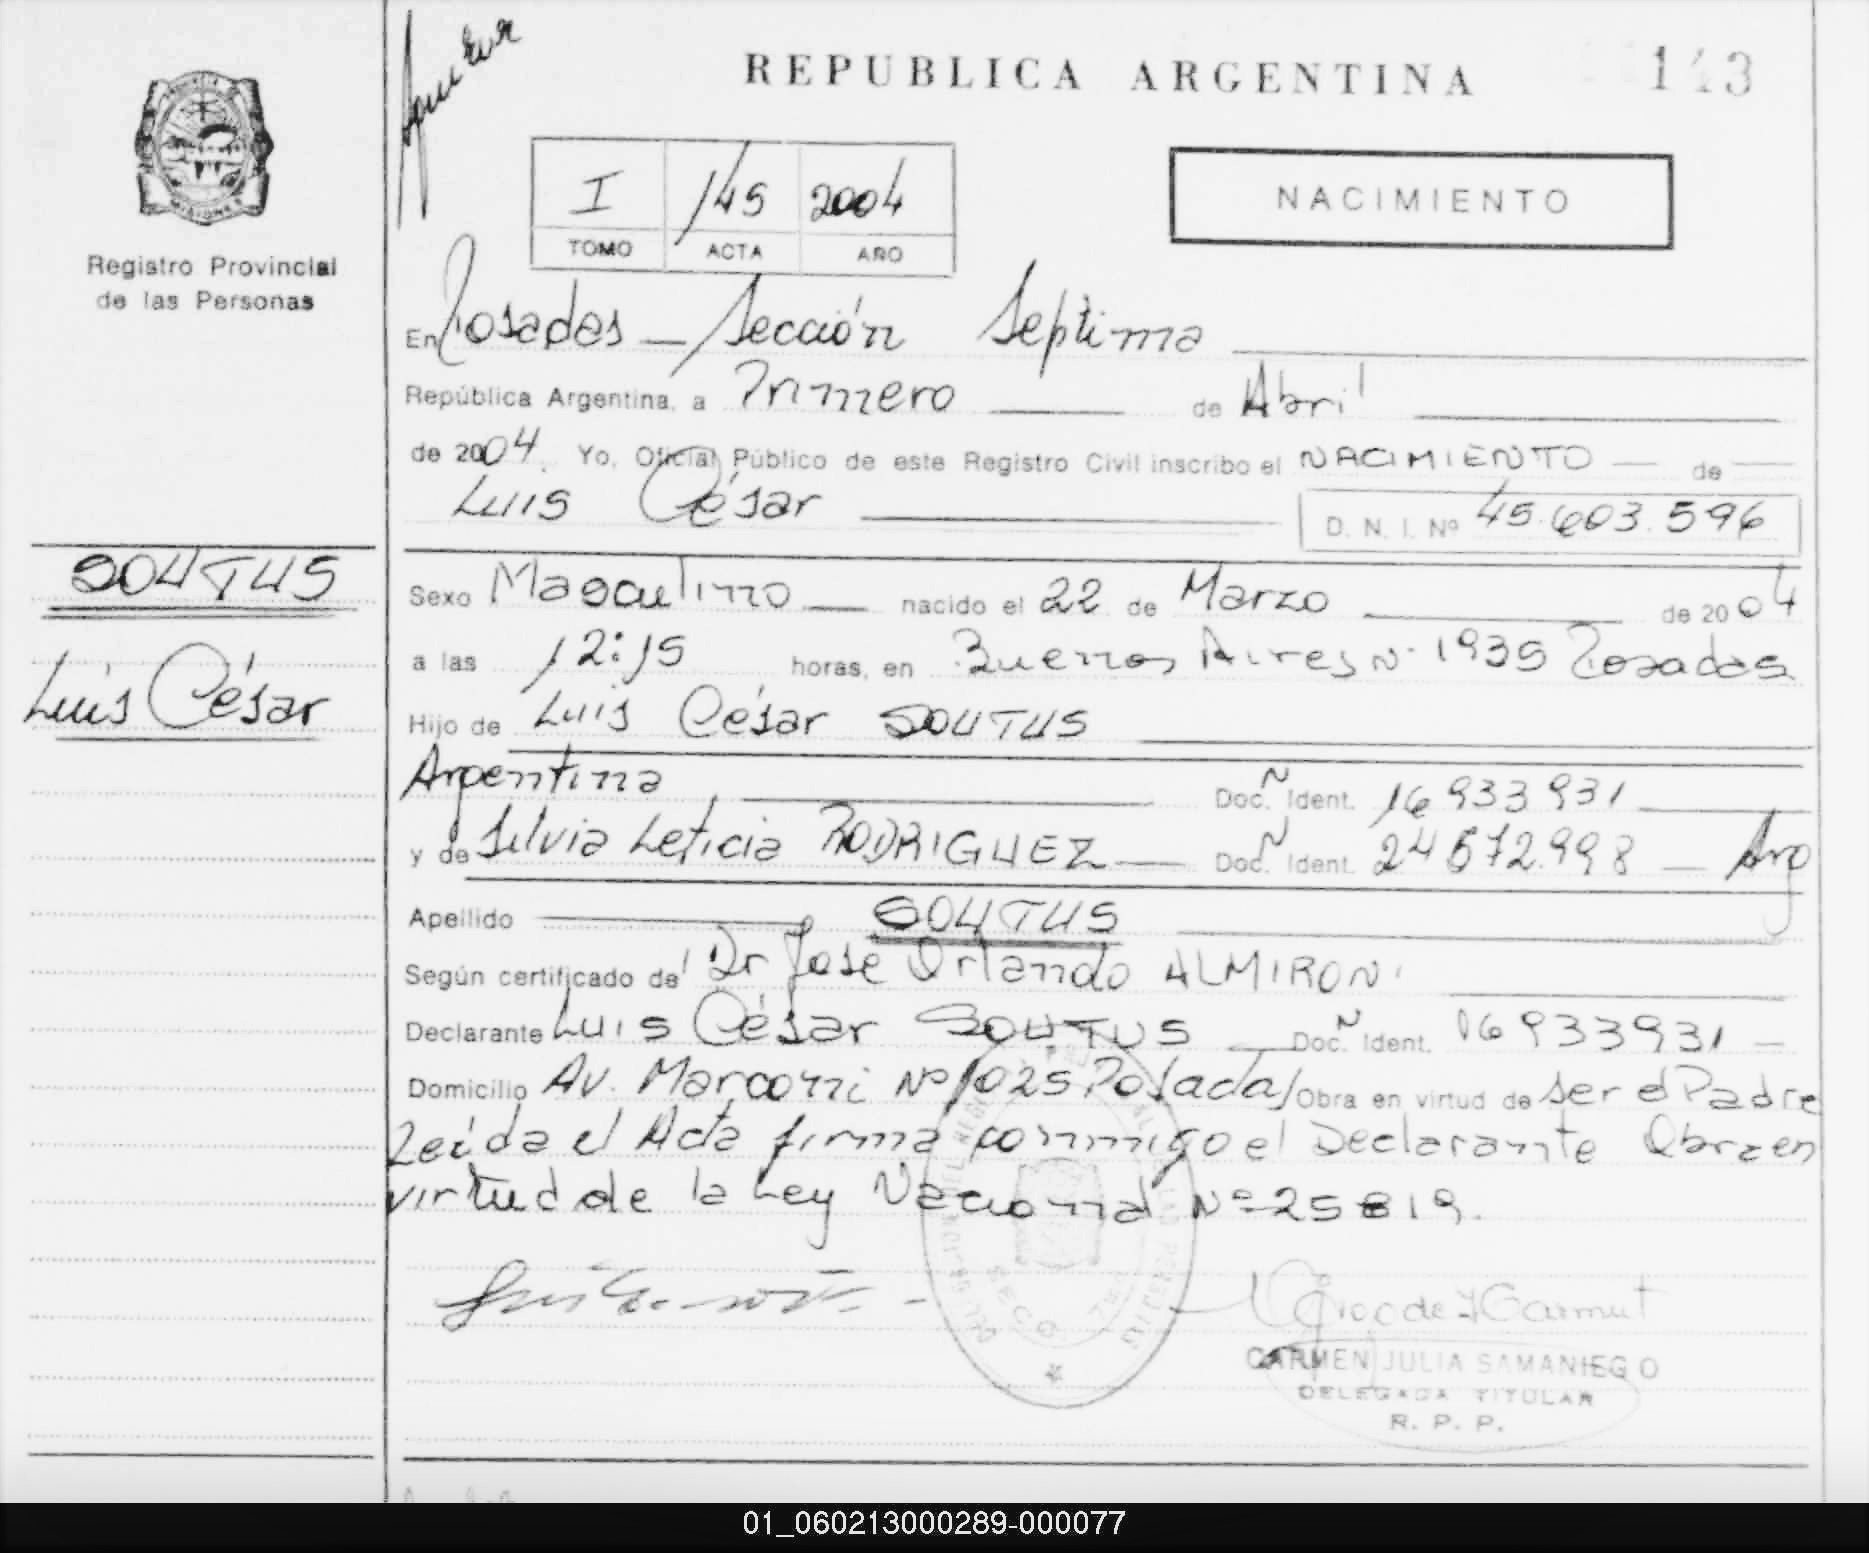 REPUBLICA ARGENTINA
143
MISIONES
Registro Provincial
de las Personas
I 145 2004
TOMO ACTA AÑO
NACIMIENTO
En Posadas - Sección Septima
República Argentina, a Primero de Abril
de 2004. Yo, Oficial Público de este Registro Civil inscribo el NACIMIENTO de
Luis César
D. N. I. Nº 45.603.596
SOUTUS
Luis César
Sexo Masculino nacido el 22 de Marzo de 2004
a las 12:15 horas, en Buenos Aires Nº 1935 Posadas
Hijo de Luis César SOUTUS
Argentina Doc. Ident. 16 933 931
y de Silvia Leticia RODRIGUEZ Doc. Ident. 24 572.998 - Arg
Apellido SOUTUS
Según certificado de Dr Jose Orlando ALMIRON
Declarante Luis César SOUTUS Doc. Ident. 16 933931
Domicilio Av. Marconi Nº 1025 Posadas Obra en virtud de ser el Padre
Leída el Acta firma conmigo el Declarante Obra en
virtud de la Ley Nacional Nº 25819.
CARMEN JULIA SAMANIEGO
DELEGADA TITULAR
R. P. P.
01_060213000289-000077